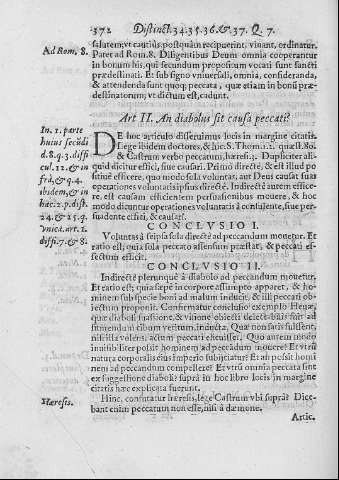 372 Distinct. 34. 35. 36. & 37. Q. 7.
Ad Rom. 8.
salutem, vt cautius, postquàm recipuerint, viuant, ordinatur.
Patet ad Rom. 8. Diligentibus Deum omnia cooperantur
in bonum his, qui secundum propositum vocati sunt sancti
prædestinati. Et sub signo vniuersali, omnia, consideranda,
& attendenda sunt quoq; peccata, quæ etiam in bonũ præ-
destinatorum, vt dictum est, cadunt.
Art II. An diabolus sit causa peccati?
In. 1. parte
huius secũdi
d. 8. q. 3. diffi
cul. 12. & in
frà, & q. 4.
ibidem, & in
hac. 2. p. dist.
24. & 25. q.
vnica. art. 1.
diffi. 7. & 8.
DE hoc articulo disseruimus locis in margine citatis.
Lege ibidem doctores, & hic S. Thom. 1. 2. quæst. 80.
& Castrum verbo peccatum, hæres. 1. Dupliciter ali-
quid dicitur effici, siue causari. Primo directè, & est illud po
sitiuè efficere, quo modo sola voluntas, aut Deus causat ope
rationes voluntatis ipsius directè. Indirectè autem effice-
re, est causam efficientem persuasionibus mouere, & hoc
modo dicuntur operationes voluntatis à consulente, siue per-
suadente effici, & causari.
CONCLVSIO I.
Voluntas à seipsa sola directè ad peccandum monetur. Et
ratio est; quia sola peccato assensum præstat, & peccati ef-
fectum efficit.
CONCLVSIO II.
Indirectè plerunquè à diabolo ad peccandum mouetur.
Et ratio est; quia sepè in corpore assumpto apparet, & ho-
minem sub specie boni ad malum inducit, & illi peccati ob-
iectum proponit. Confirmatur conclusio exemplo Heuæ,
quæ diaboli suasione, & visione obiecti delectabilis fuit ad
sumendum cibum vetitum, inducta. Quæ non satis fuissent,
nisi illa volens, actum peccati efficisset. Quo autem modo
inuisibiliter possit hominem ad peccandum mouere? Et vtrũ
natura corporalis eius imperio subijciatur? Et an possit homi
nem ad peccandum compellere? Et vtrũ omnia peccata sint
ex suggestione diaboli? suprà in hoc libro locis in margine
citatis hæc explicata fuerunt.
Hæresis.
Hinc, confutatur hæresis, lege Castrum vbi suprà: Dice-
bant enim peccatum non esse, nisi à dæmone.
Artic.